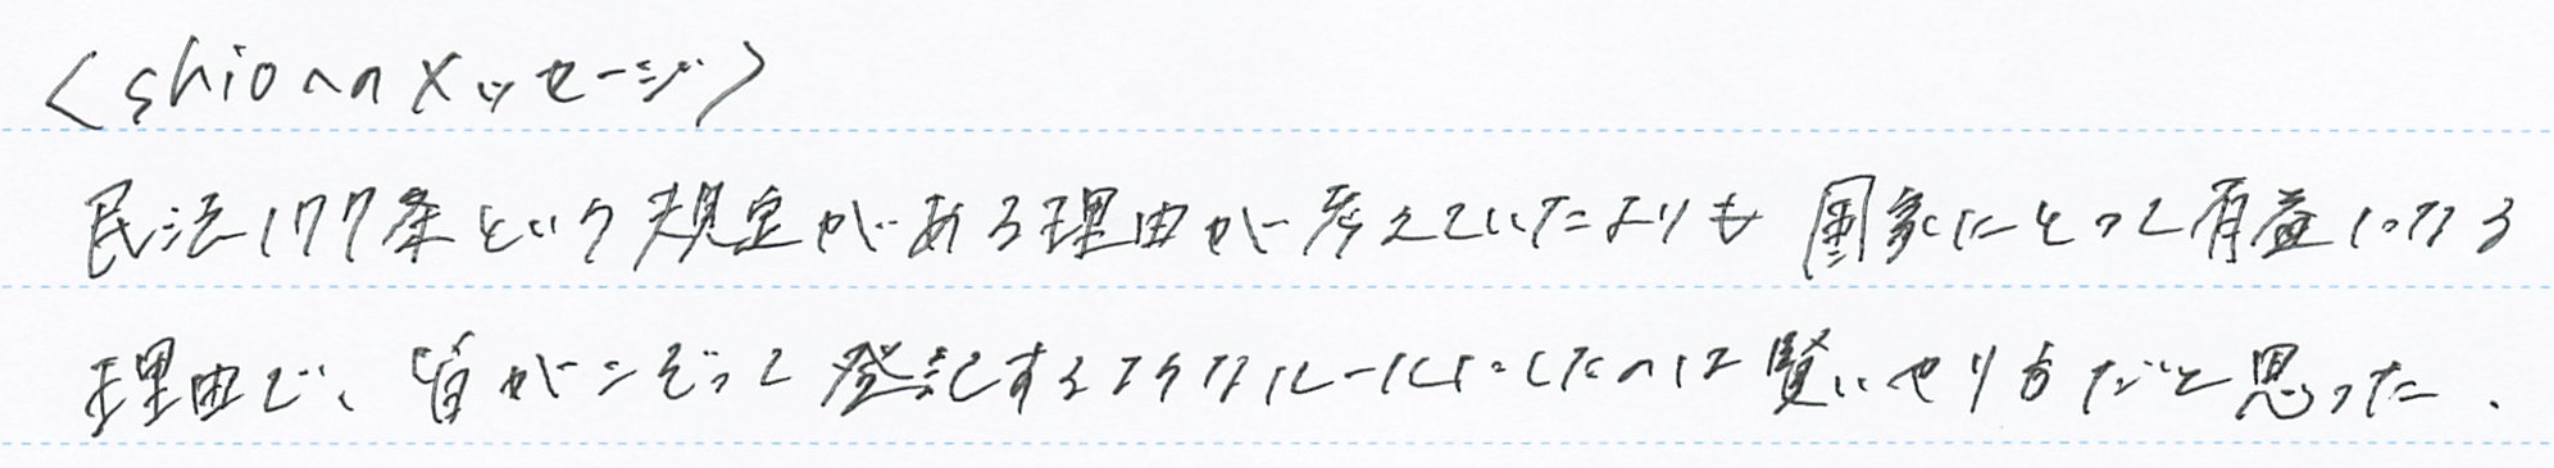 <shionaメッセージ>
民法177条という規定がある理由が考えていたよりも国家にとって有益になる
理由で、皆がこぞって登記するようなルールにしたのは賢いやり方だと思った.